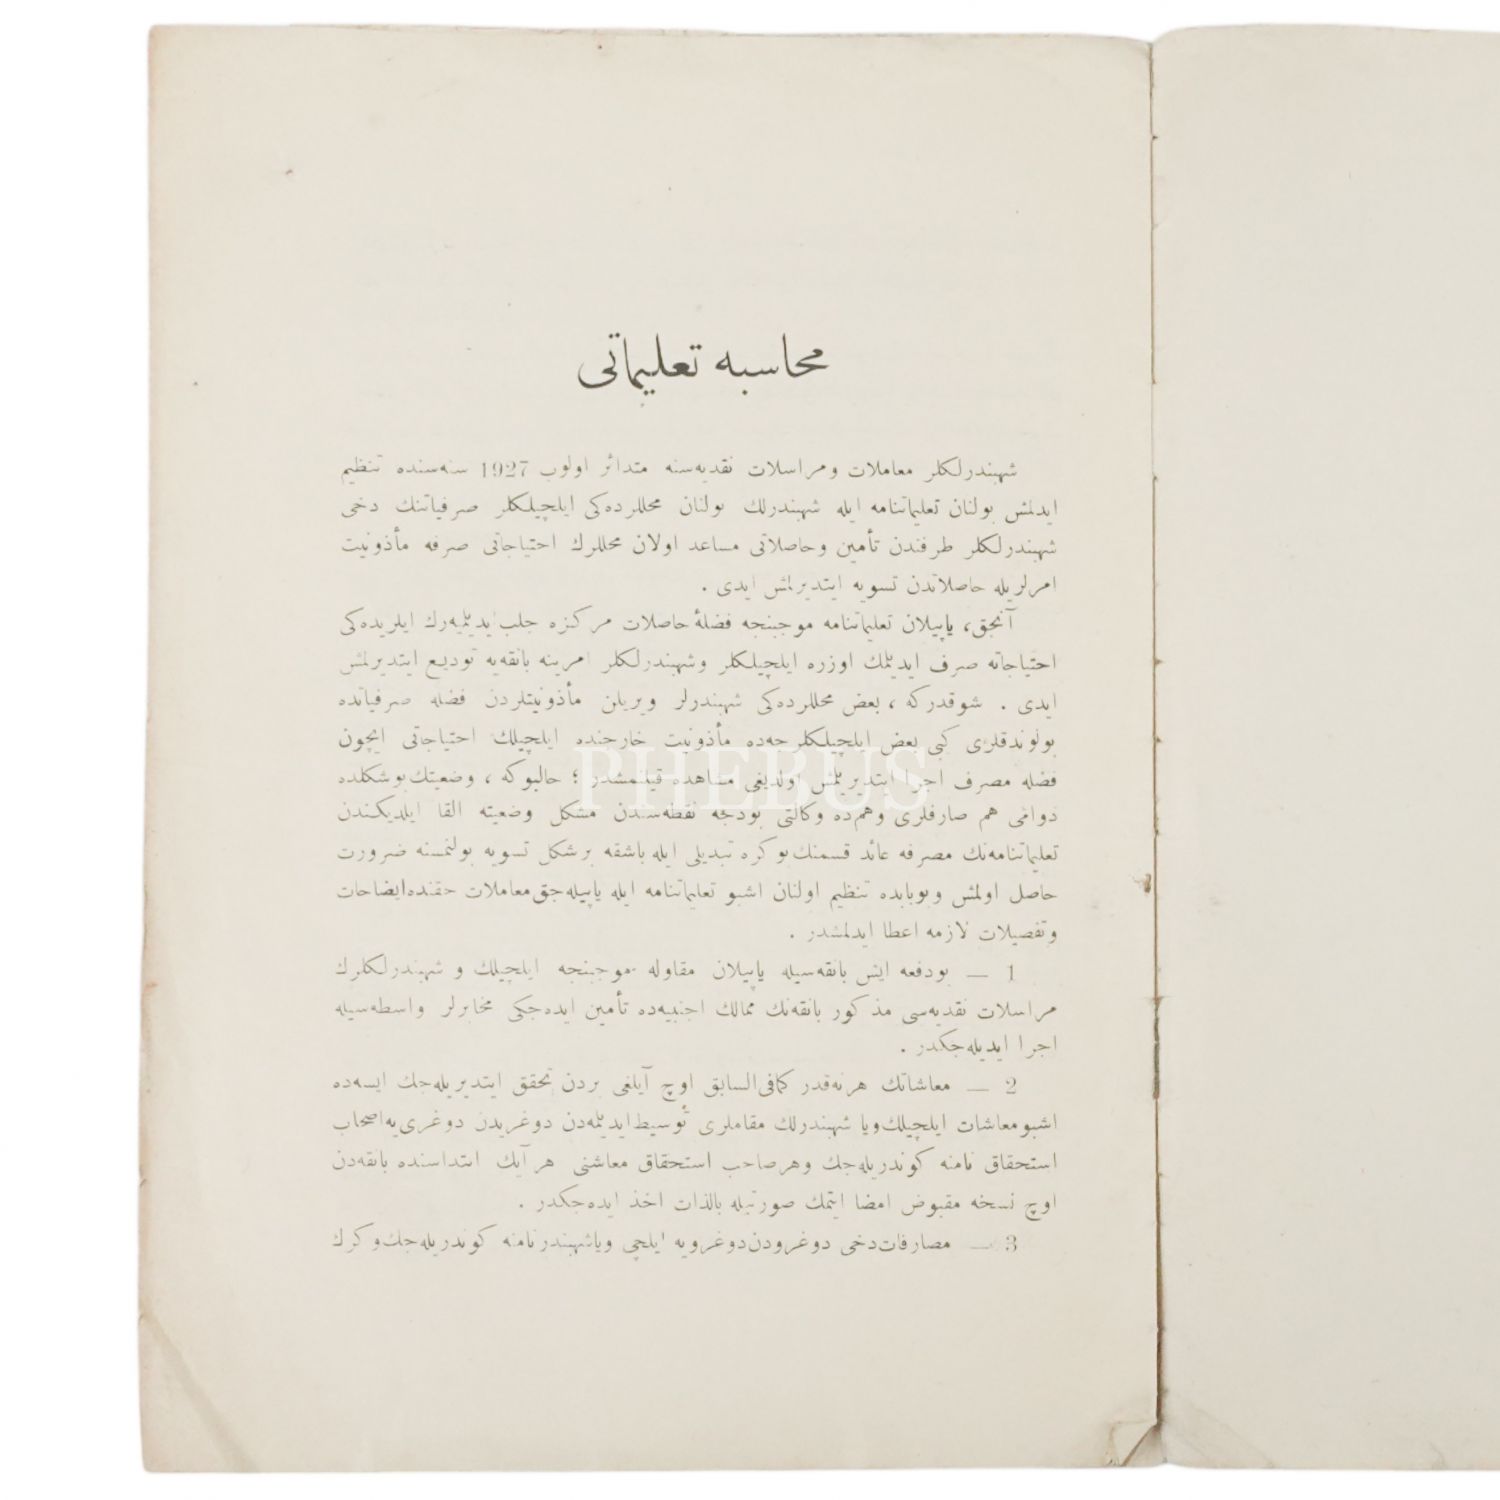 محاسبه تعلیماتی
شهبندرلكلر معاملات ومراسلات نقدیه‌سنه متدائر اولوب 1927 سنه‌سنده تنظیم
ایدلمش بولنان تعلیماتنامه ایله شهبندرلك بولنان محللرده‌كی ایلچیلكلر صرفیاتنك دخی
شهبندرلكلر طرفندن تأمین وحاصلاتی مساعد اولان محللرك احتیاجاتی صرفه مأذونیت
امرلریله حاصلاتدن تسویه ایتدیرلمش ایدی .
آنجق، یاپیلان تعلیماتنامه موجبنجه فضلۀ حاصلات مركزه جلب ایدیلمیه‌رك ایلریده‌كی
احتیاجاته صرف ایدیلمك اوزره ایلچیلكلر وشهبندرلكلر امرینه بانقه‌یه تودیع ایتدیرلمش
ایدی . شوقدركه ، بعض محللرده‌كی شهبندرلر ویریلن مأذونیتلردن فضله صرفیاتده
بولوندقلری كبی بعض ایلچیلكلرجه‌ده مأذونیت خارجنده ایلچیلك احتیاجاتی ایچون
فضله مصرف اجرا ایتدیریلمش اولدیغی مشاهده قیلنمشدر ؛ حالبوكه ، وضعیتك بوشكلده
دوامی هم صارفلری وهم‌ده وكالتی بودجه نقطه‌سندن مشكل وضعیته القا ایلدیكندن
تعلیماتنامه‌نك مصرفه عائد قسمنك بوكره تبدیلی ایله باشقه برشكل تسویه بولنمسنه ضرورت
حاصل اولمش وبوبابده تنظیم اولنان اشبو تعلیماتنامه ایله یاپیله‌جق معاملات حقنده ایضاحات
وتفصیلات لازمه اعطا ایدلمشدر .
1 — بودفعه ایش بانقه‌سیله یاپیلان مقاوله موجبنجه ایلچیلك و شهبندرلكلرك
مراسلات نقدیه‌سی مذكور بانقه‌نك ممالك اجنبیه‌ده تأمین ایده‌جكی مخابرلر واسطه‌سیله
اجرا ایدیله‌جكدر .
2 — معاشاتك هرنه‌قدر كمافی‌السابق اوچ آیلغی بردن تحقق ایتدیریله‌جك ایسه‌ده
اشبو معاشات ایلچیلك ویا شهبندرلك مقاملری توسیط ایدیلمه‌دن دوغریدن دوغری‌یه اصحاب
استحقاق نامنه كوندریله‌جك وهرصاحب استحقاق معاشنی هرآیك ابتداسنده بانقه‌دن
اوچ نسخه مقبوض امضا ایتمك صورتیله بالذات اخذ ایده‌جكدر .
3 — مصارفات دخی دوغرودن دوغرویه ایلچی ویا شهبندر نامنه كوندریله‌جك وكرك
PHEBUS